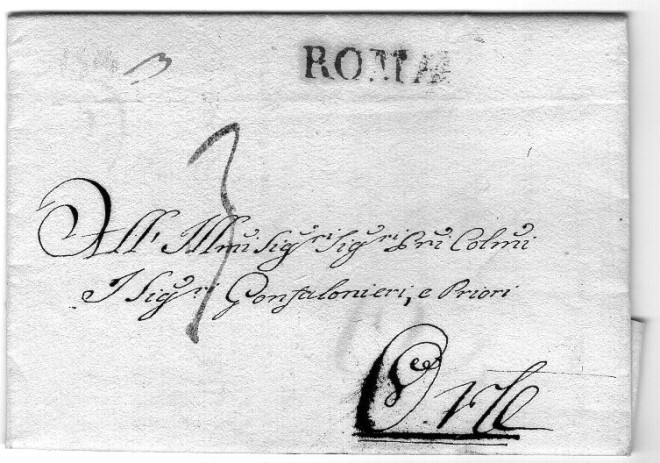 ROMA
3
All' Illmi Sigri Sigri Pri Colmi
I Sigri Gonfalonieri, e Priori
Orte